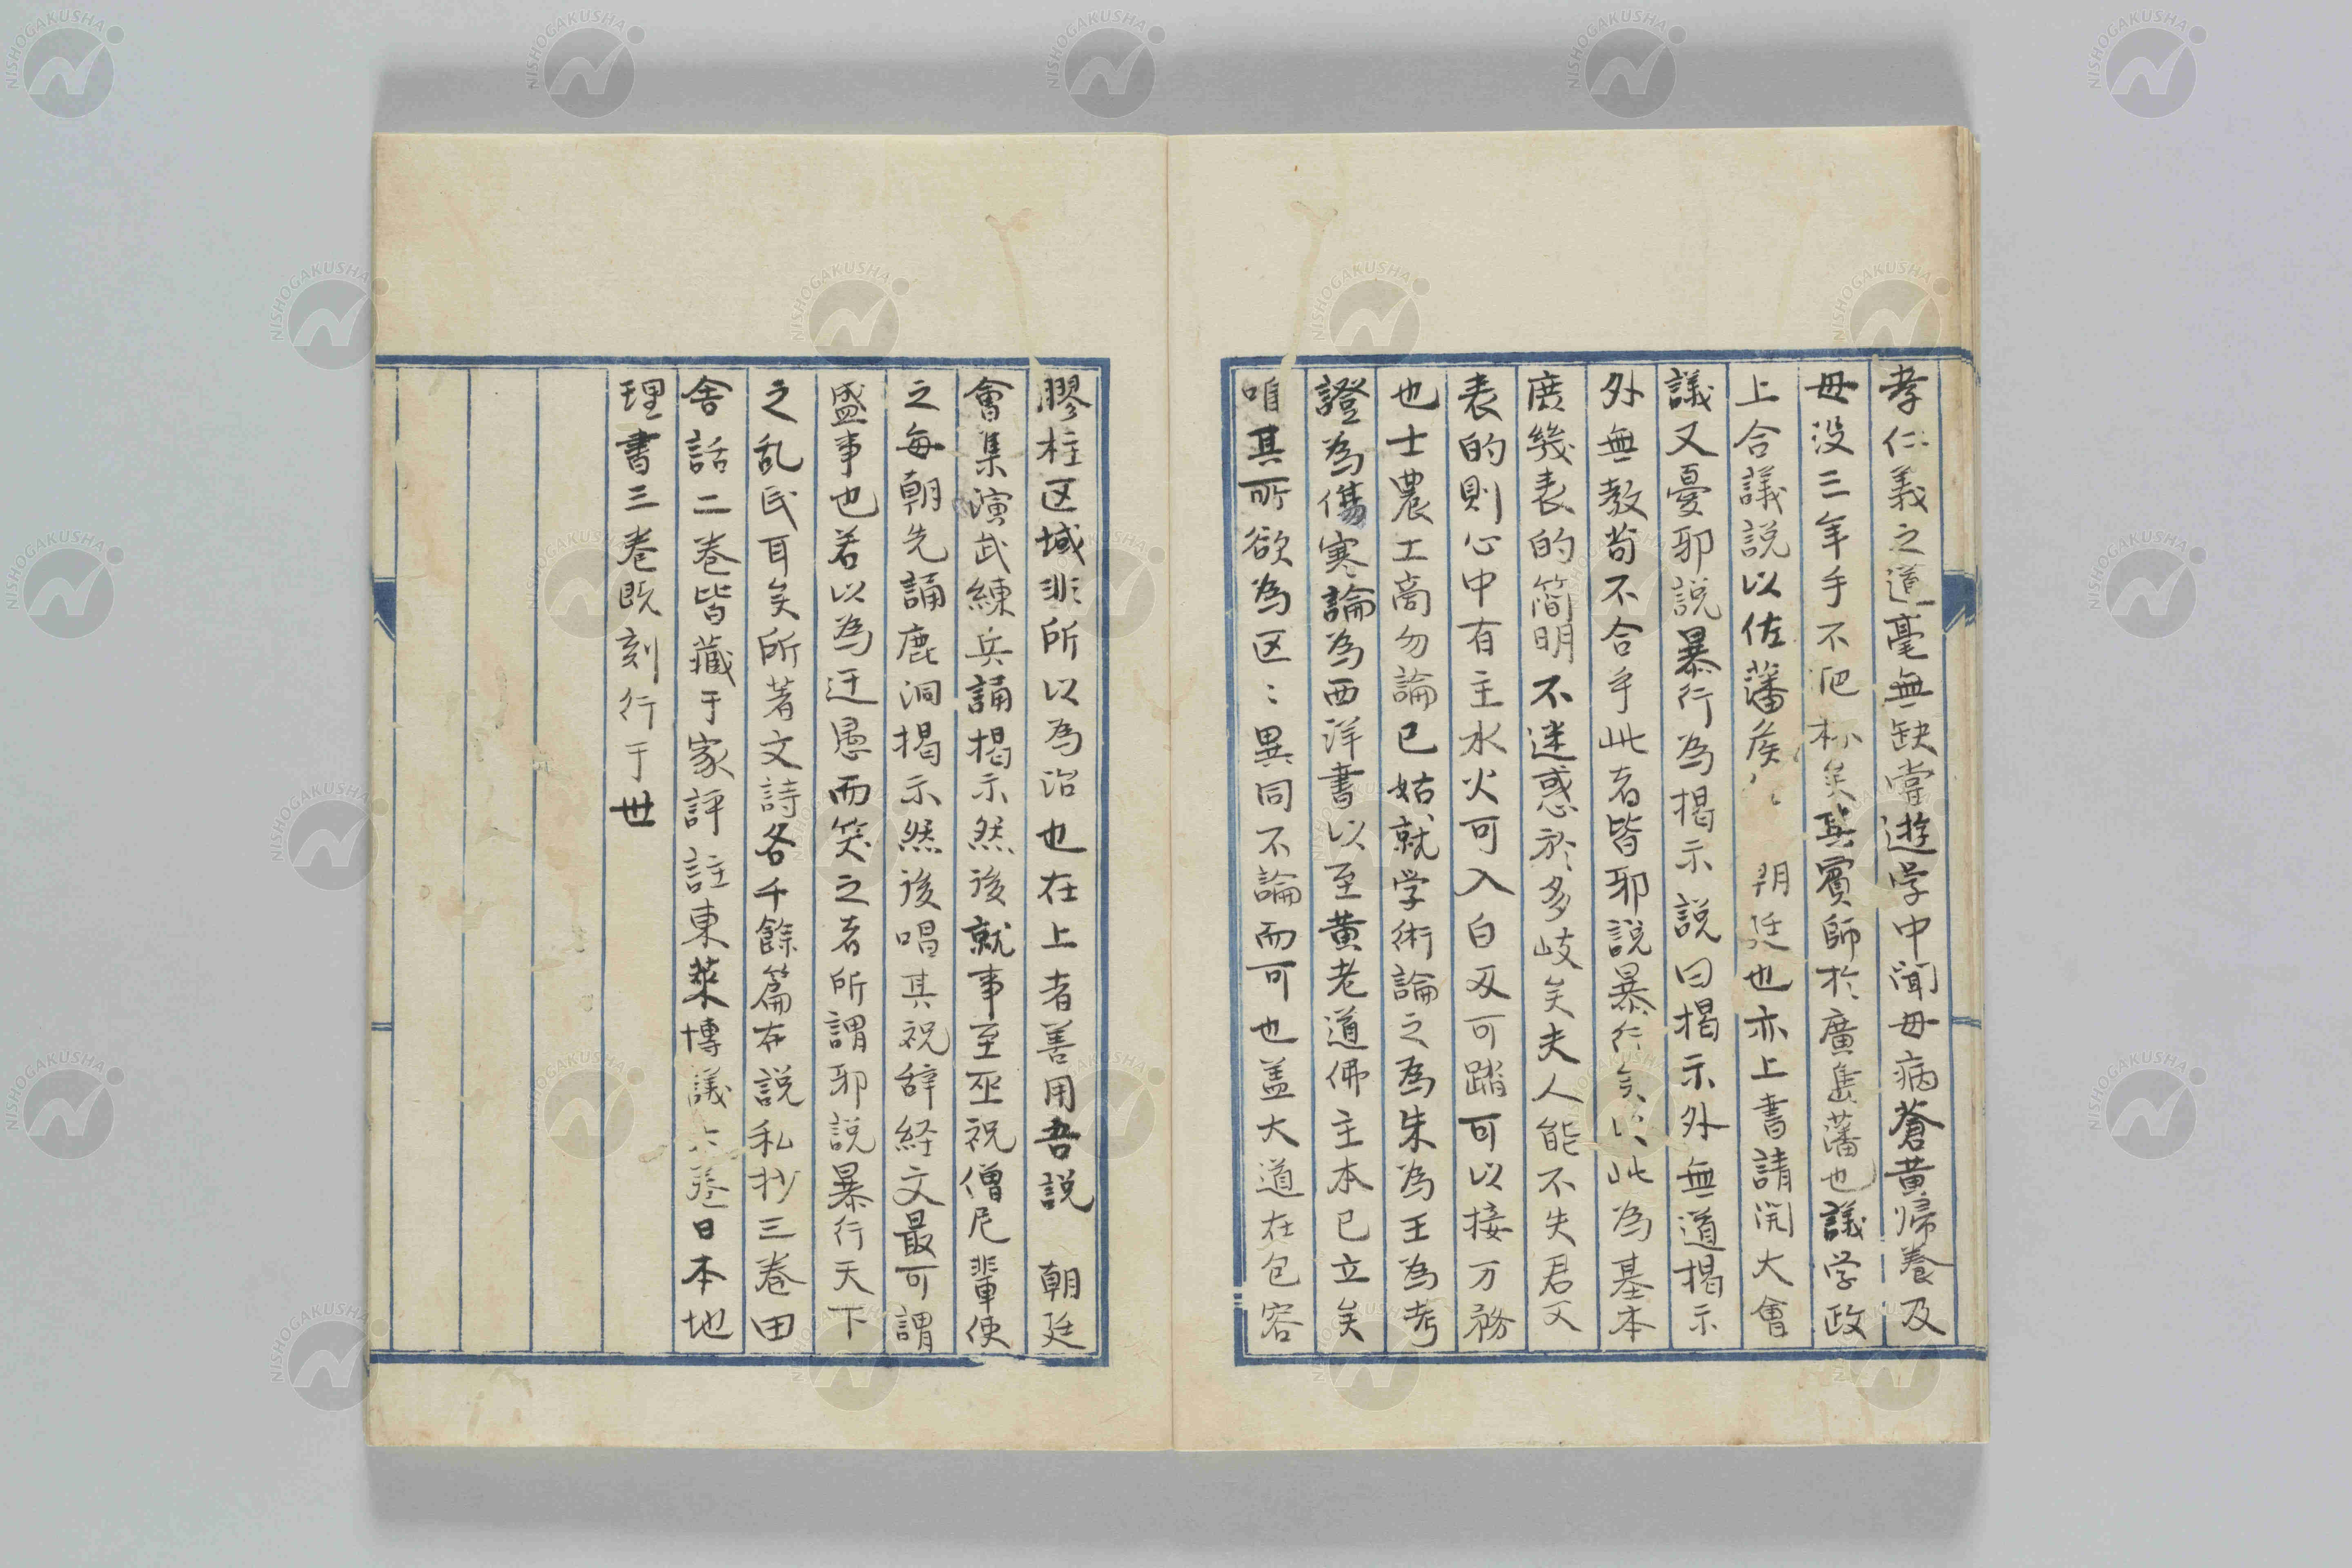 孝仁義之道毫無缺嘗遊学中聞母病蒼黄帰養及
母没三年手不爬 矣其賓師於廣島藩也議学政
上合議説以佐藩矦 朝廷也亦上書請開大會
議又憂耶説暴行為揭示説曰揭示外無道揭示
外無教苟不合乎此者皆耶説暴行矣以此為基本
庶幾表的簡明不迷惑於多岐矣夫人能不失君父
表的則心中有主水火可入白刃可踏可以接万務
也士農工商勿論已姑就学術論之為朱為王為考
證為傷寒論為西洋書以至黄老道佛主本已立矣
咱其所欲為区〻異同不論而可也盖大道在包容
膠柱区域非所以為治也在上者善用吾説 朝廷
會集演武練兵誦揭示然後就事至巫祝僧尼輩使
之每朝先誦鹿洞揭示然後唱其祝辞経文最可謂
盛事也若以為迂愚而笑之者所謂耶説暴行天下
之乱民耳矣所著文詩各千餘篇左説私抄三巻田
舍話二巻皆藏于家評註東萊博議六巻日本地
理書三巻既刻行于世
NISHOGAKUSHA